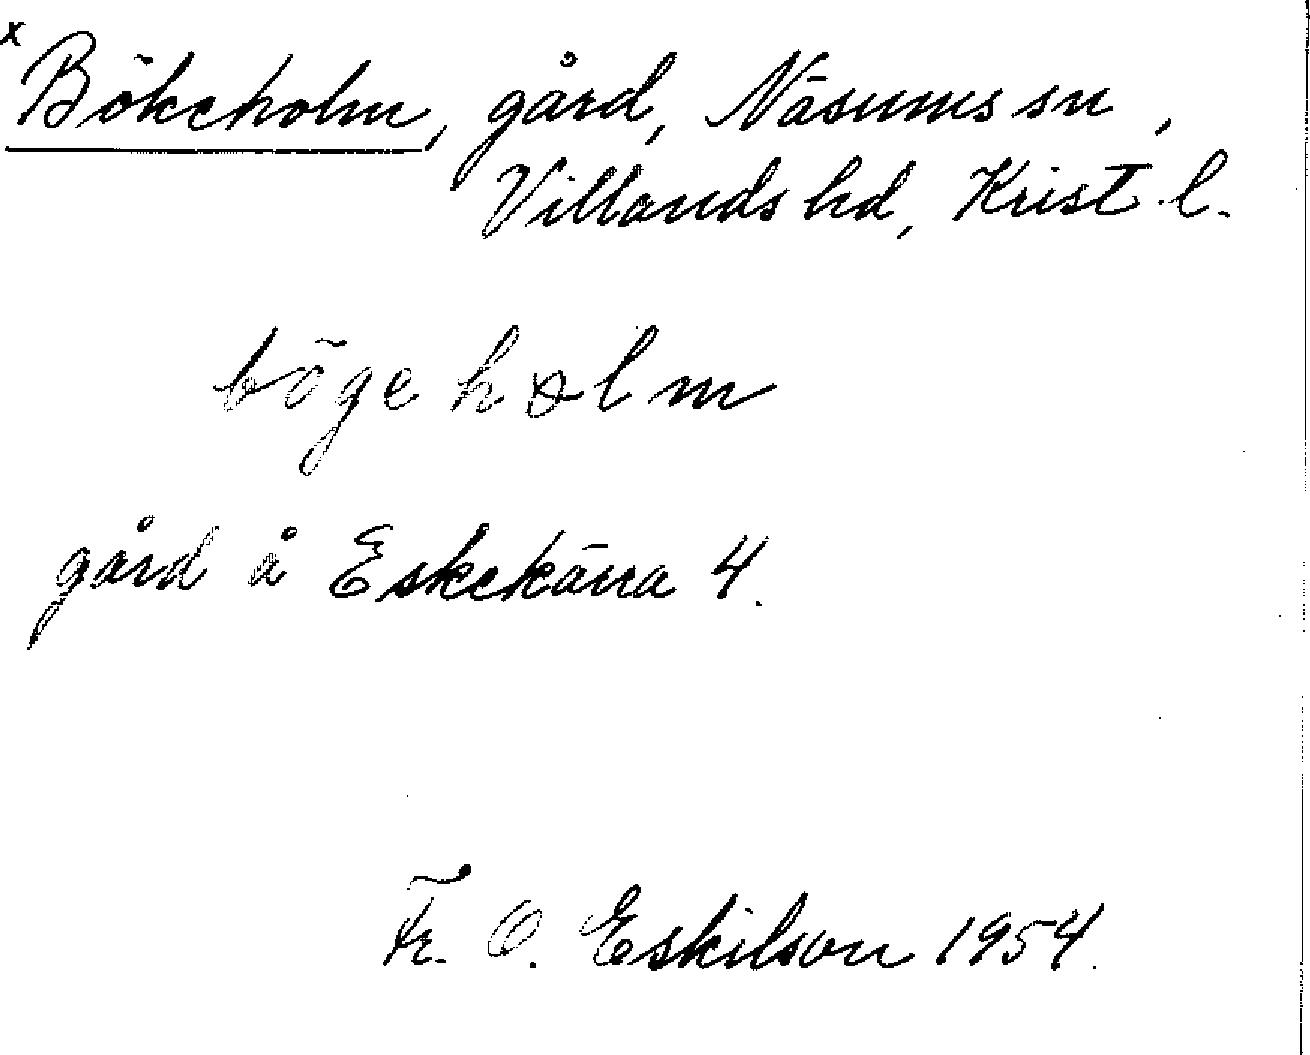 x
Bökeholm, gård, Näsums sn,
Villands hd, Krist. l.
bögeholm
gård å Eskekärra 4.
Fr. O. Eskilson 1954.